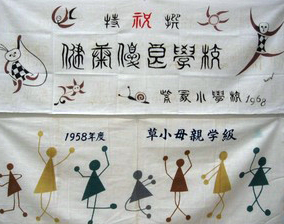 特祝撰
健康優良學校
小學校 1968
1958年度 草小母親学級